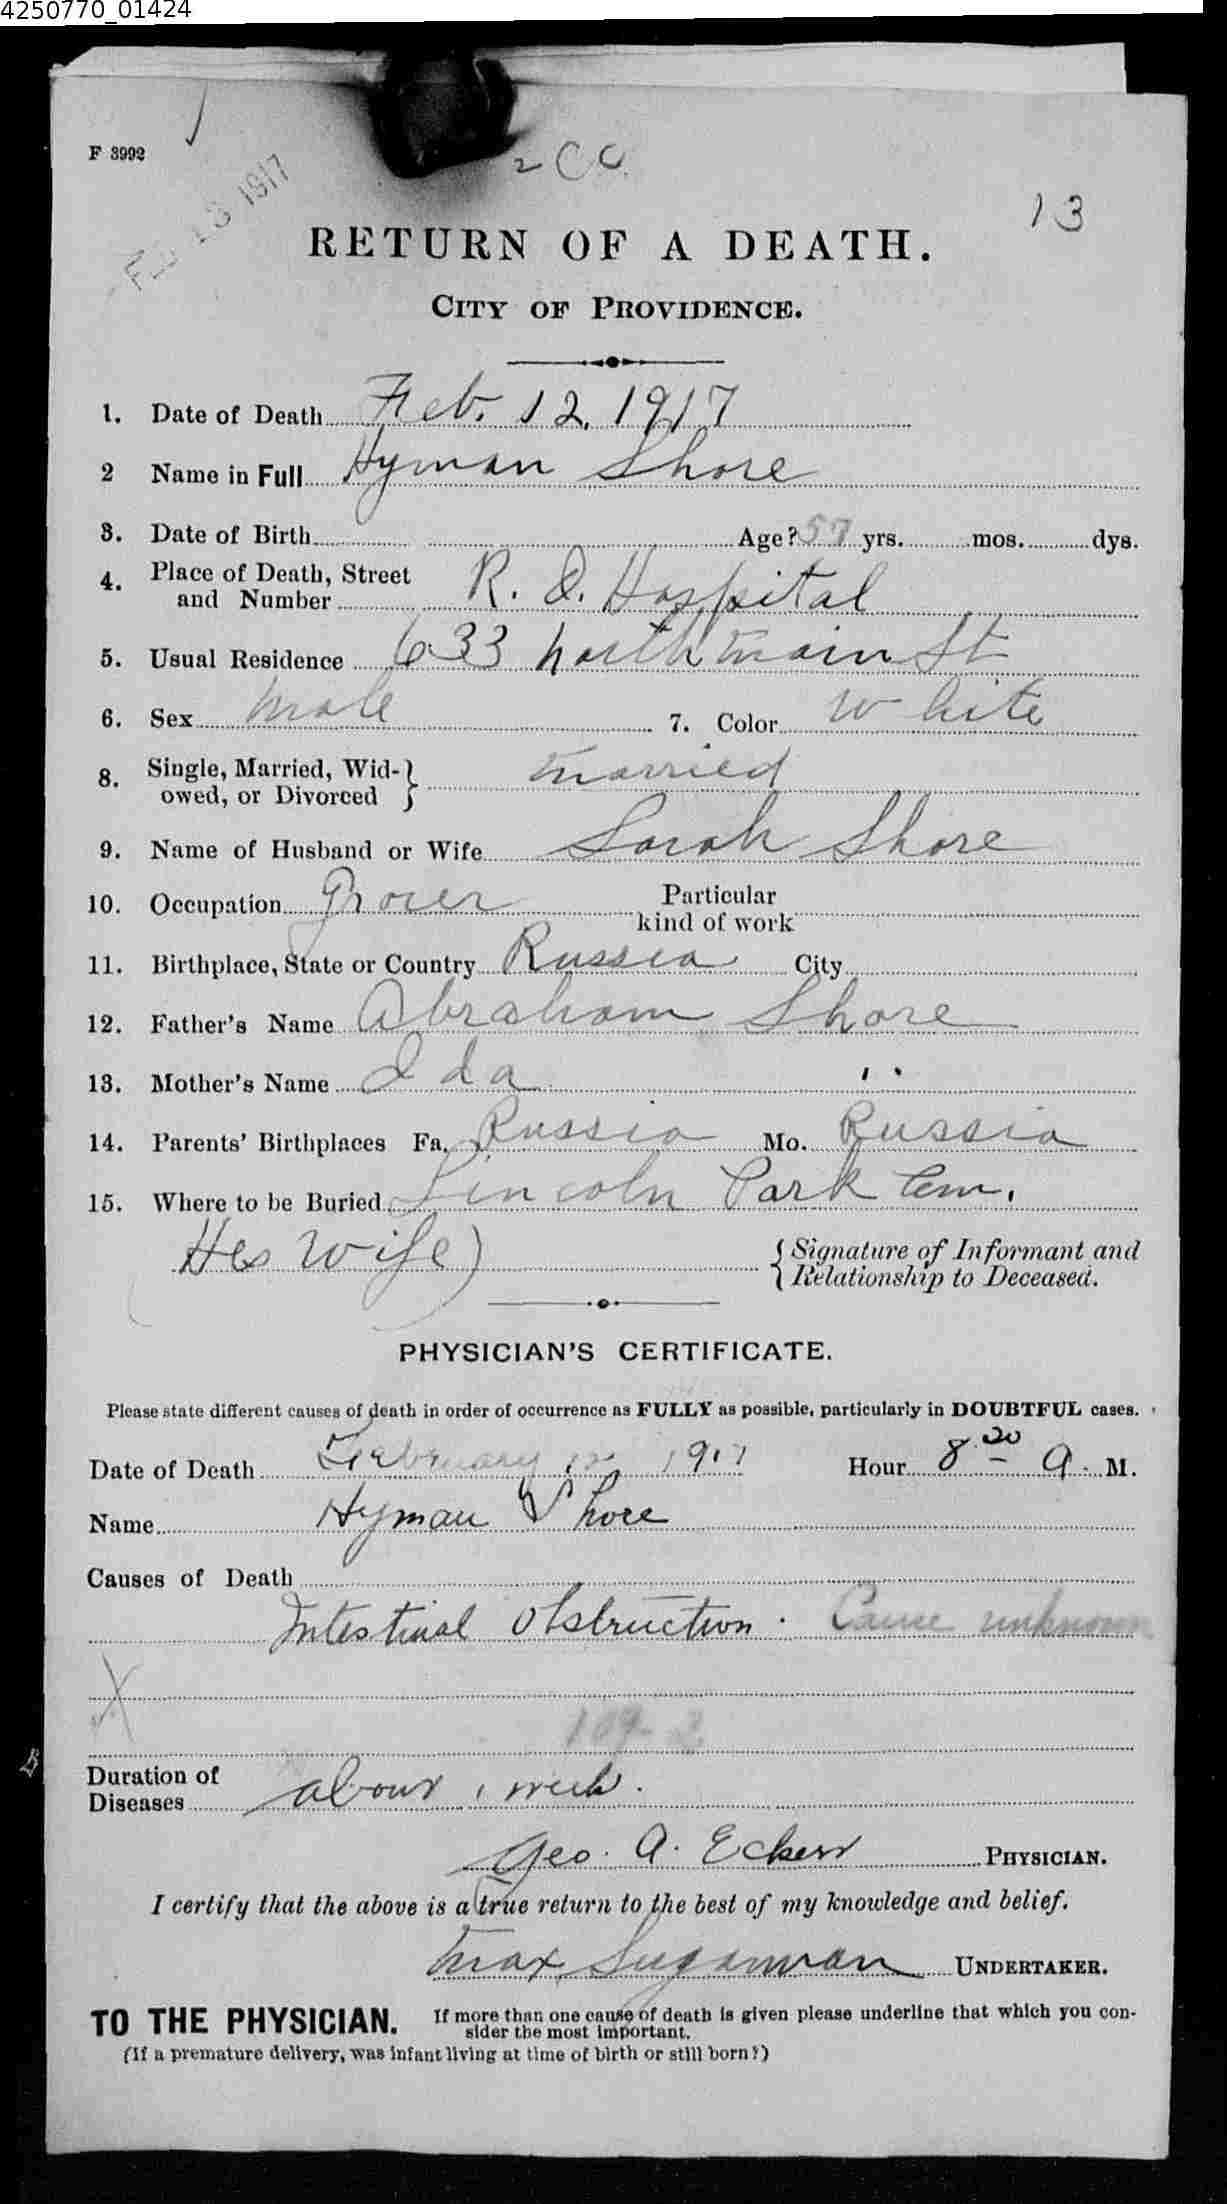 4250770_01424
F 3992
2 CC.
FEB 13 1917
13
RETURN OF A DEATH.
CITY OF PROVIDENCE.
1. Date of Death Feb. 12, 1917
2 Name in Full Hyman Shore
3. Date of Birth Age? 57 yrs. mos. dys.
4. Place of Death, Street and Number R. I. Hospital
5. Usual Residence 633 North Main St
6. Sex Male 7. Color White
8. Single, Married, Widowed, or Divorced Married
9. Name of Husband or Wife Sarah Shore
10. Occupation Grocer Particular kind of work
11. Birthplace, State or Country Russia City
12. Father's Name Abraham Shore
13. Mother's Name Ida " "
14. Parents' Birthplaces Fa. Russia Mo. Russia
15. Where to be Buried Lincoln Park Cem.
His Wife) {Signature of Informant and
Relationship to Deceased.
PHYSICIAN'S CERTIFICATE.
Please state different causes of death in order of occurrence as FULLY as possible, particularly in DOUBTFUL cases.
Date of Death February 12 1917 Hour 8 20 A. M.
Name Hyman Shore
Causes of Death
Intestinal Obstruction. Cause unknown
109-2
Duration of Diseases about 1 week.
Geo. A. Eckert PHYSICIAN.
I certify that the above is a true return to the best of my knowledge and belief.
Max Sugarman UNDERTAKER.
TO THE PHYSICIAN. If more than one cause of death is given please underline that which you con-
sider the most important.
(If a premature delivery, was infant living at time of birth or still born?)